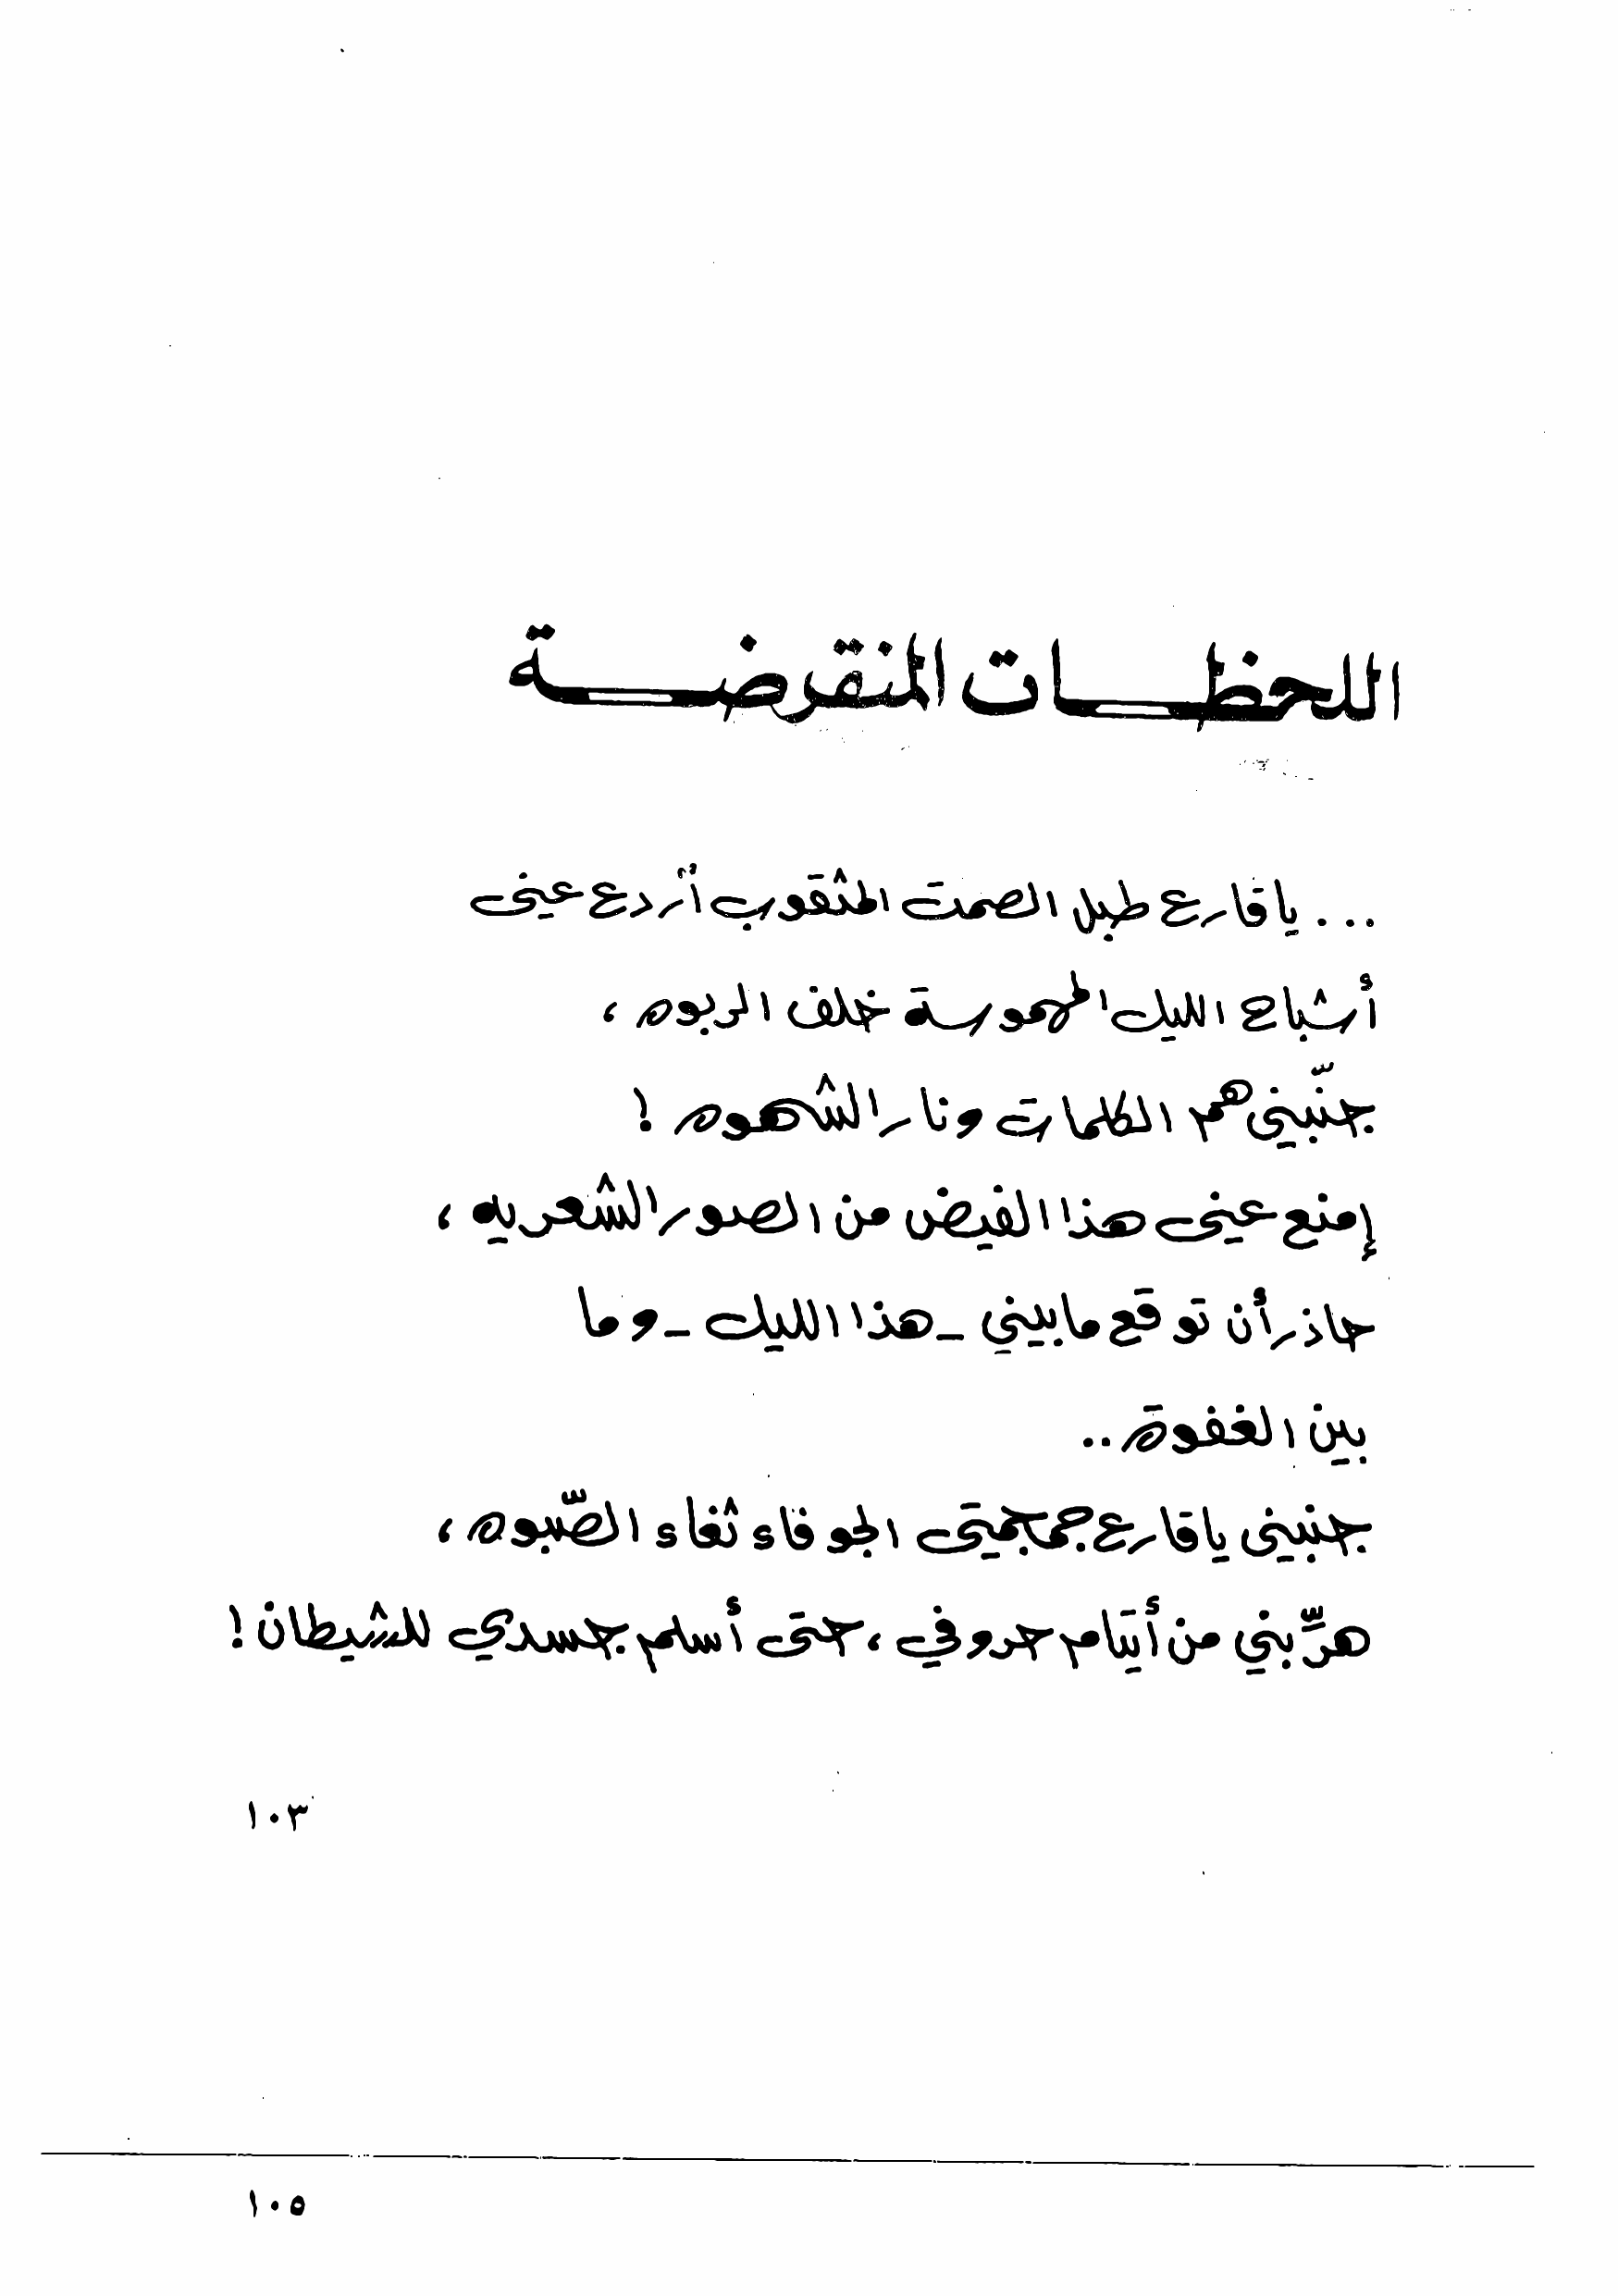 اللحظات المنقرضة
... يا قارع طبل الصمت المثقوب أردع عيني
أشباح الليل المهموسة خلف الربوه ،
جنّبيني هم الكلمات ونار الشهوه !
إمنع عيني هذا الفيض من الصور الشعريه ،
حاذر أن توقع ما بيني - هذا الليل - وما
بين الغفوة ..
جنبيني يا قارع جمجمتي الجوفاء ثغاء الصّبوه ،
هرّبني من أيتام حروفي ، حتى أسلم جسدي للشيطان !
١٠٣
١٠٥